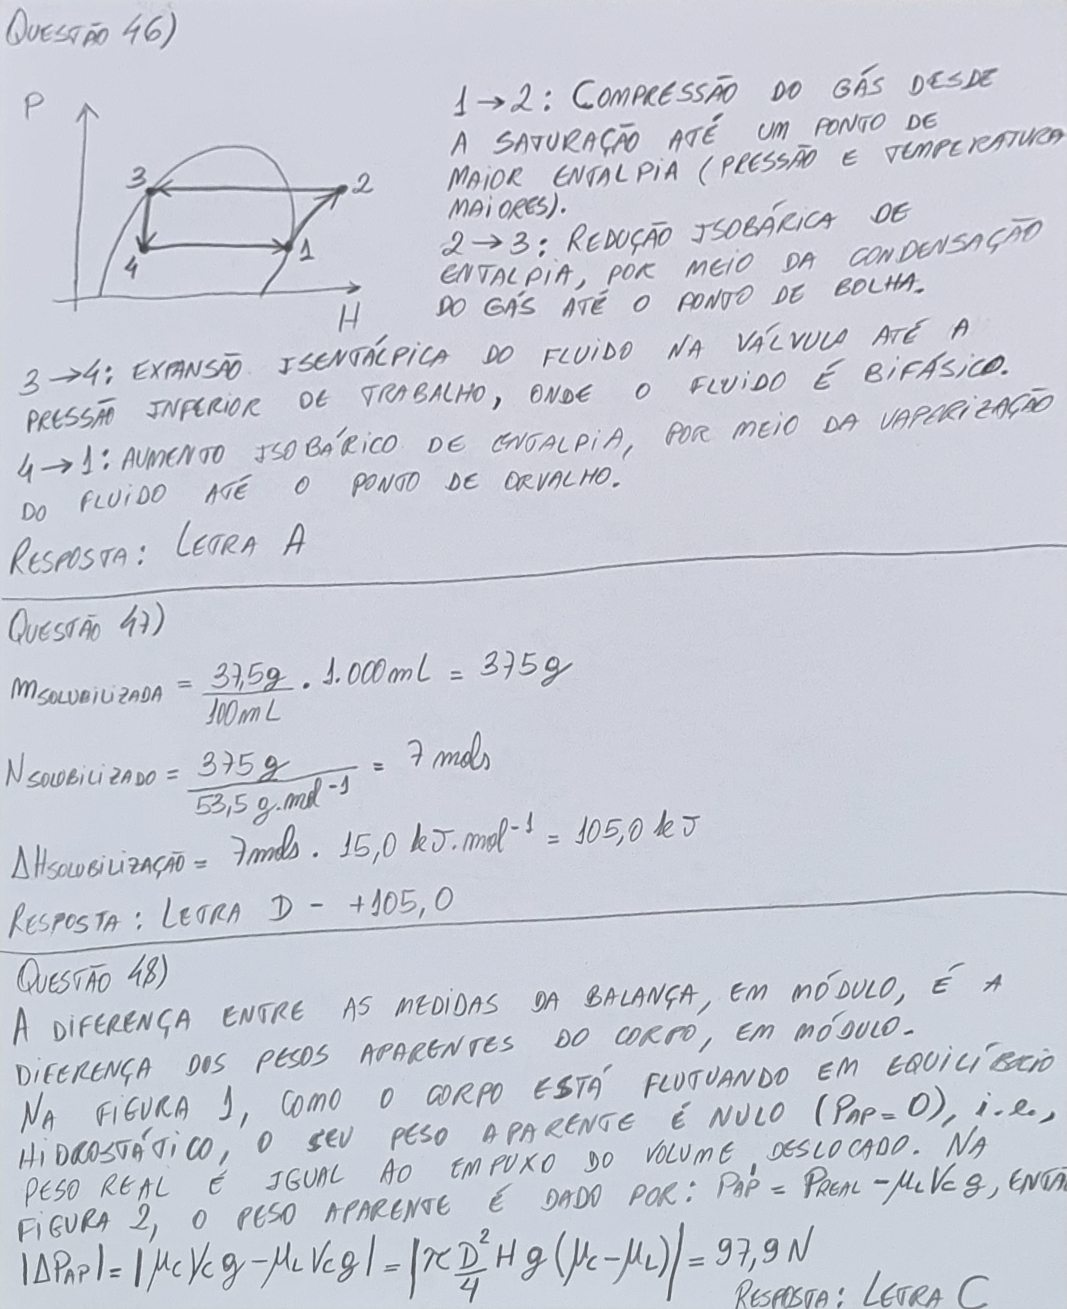 QUESTÃO 46)
P
3
2
4
1
H
1 → 2: COMPRESSÃO DO GÁS DESDE
A SATURAÇÃO ATÉ UM PONTO DE
MAIOR ENTALPIA (PRESSÃO E TEMPERATURA
MAIORES).
2 → 3: REDUÇÃO ISOBÁRICA DE
ENTALPIA, POR MEIO DA CONDENSAÇÃO
DO GÁS ATÉ O PONTO DE BOLHA.
3 → 4: EXPANSÃO ISENTÁLPICA DO FLUIDO NA VÁLVULA ATÉ A
PRESSÃO INFERIOR DE TRABALHO, ONDE O FLUIDO É BIFÁSICO.
4 → 1: AUMENTO ISOBÁRICO DE ENTALPIA, POR MEIO DA VAPORIZAÇÃO
DO FLUIDO ATÉ O PONTO DE ORVALHO.
RESPOSTA: LETRA A
QUESTÃO 47)
mSOLUBILIZADA = 37,5g/100mL . 1.000mL = 375g
NSOLUBILIZADO = 375g/53,5 g.mol⁻¹ = 7 mols
ΔHSOLUBILIZAÇÃO = 7mols . 15,0 kJ.mol⁻¹ = 105,0 kJ
RESPOSTA: LETRA D - +105,0
QUESTÃO 48)
A DIFERENÇA ENTRE AS MEDIDAS DA BALANÇA, EM MÓDULO, É A
DIFERENÇA DOS PESOS APARENTES DO CORPO, EM MÓDULO.
NA FIGURA 1, COMO O CORPO ESTÁ FLUTUANDO EM EQUILÍBRIO
HIDROSTÁTICO, O SEU PESO APARENTE É NULO (PAP = 0), i.e.,
PESO REAL É IGUAL AO EMPUXO DO VOLUME DESLOCADO. NA
FIGURA 2, O PESO APARENTE É DADO POR: P'AP = PREAL - μLVCg, ENTÃ
|ΔPAP| = |μCVCg - μLVCg| = |π D²/4 H g (μC - μL)| = 97,9 N
RESPOSTA: LETRA C